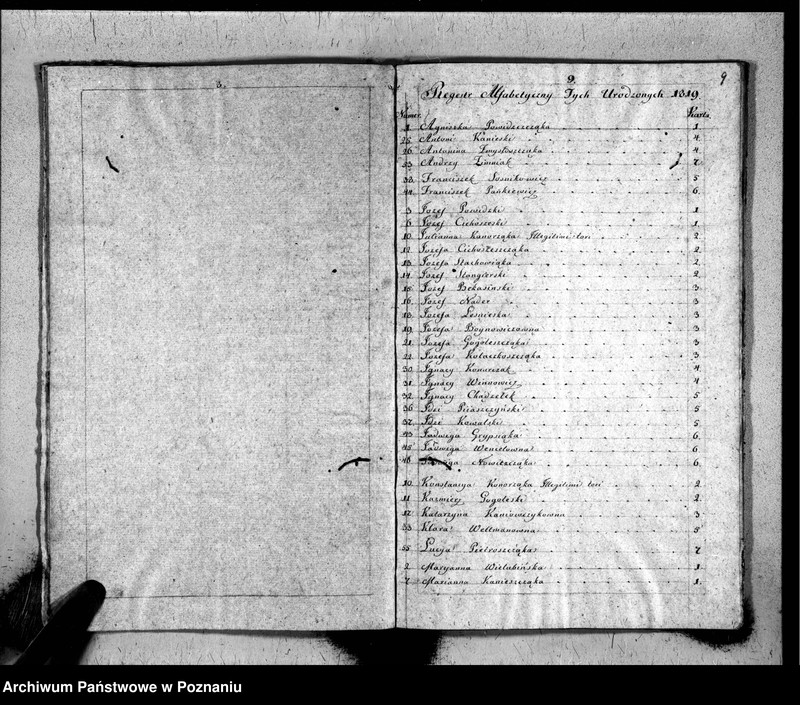 3.
2.
9
Regestr Alfabetyczny Tych Urodzonych 1819
Numer Karta
1 Agniszka Powidzczczaka 1
25 Antoni Kanieski 4
26 Antonina Zmysloszczaka 4
53 Andrzy Zimniak 7
33 Franciszek Sosnikowicz 5
44 Franciszek Pankiewicz 6
3 Jozef Powidzki 1
6 Jozef Cichoszeski 1
10 Julianna Kanorzaka Illegitimi tori 2
12 Jozefa Cichoszeszczaka 2
13 Jozefa Stachowiaka 2
14 Jozef Stangierski 2
15 Jozef Bekasinski 3
16 Jozef Nader 3
18 Jozefa Lesnieska 3
19 Jozefa Boynowiczowna 3
21 Jozefa Gogoleszczaka 3
22 Jozefa Kolaczkoszczaka 3
30 Ignacy Konurczak 4
31 Ignacy Winnowicz 4
32 Ignacy Chadzelek 5
36 Idzi Piiaszczynski 5
37 Idzi Kowalski 5
43 Jadwiga Grypsiaka 6
45 Jadwiga Wenclowna 6
48 Nowiczciaka 6
10 Konstancya Konorzaka Illegitimi tori 2
11 Kazmierz Gogoleski 2
17 Katarzyna Kaniowczykowna 3
33 Klara Weltmanowna 5
55 Lucya Pietroszciaka 7
2 Maryanna Wielebinska 1
7 Marianna Kanieszczaka 1
Archiwum Państwowe w Poznaniu